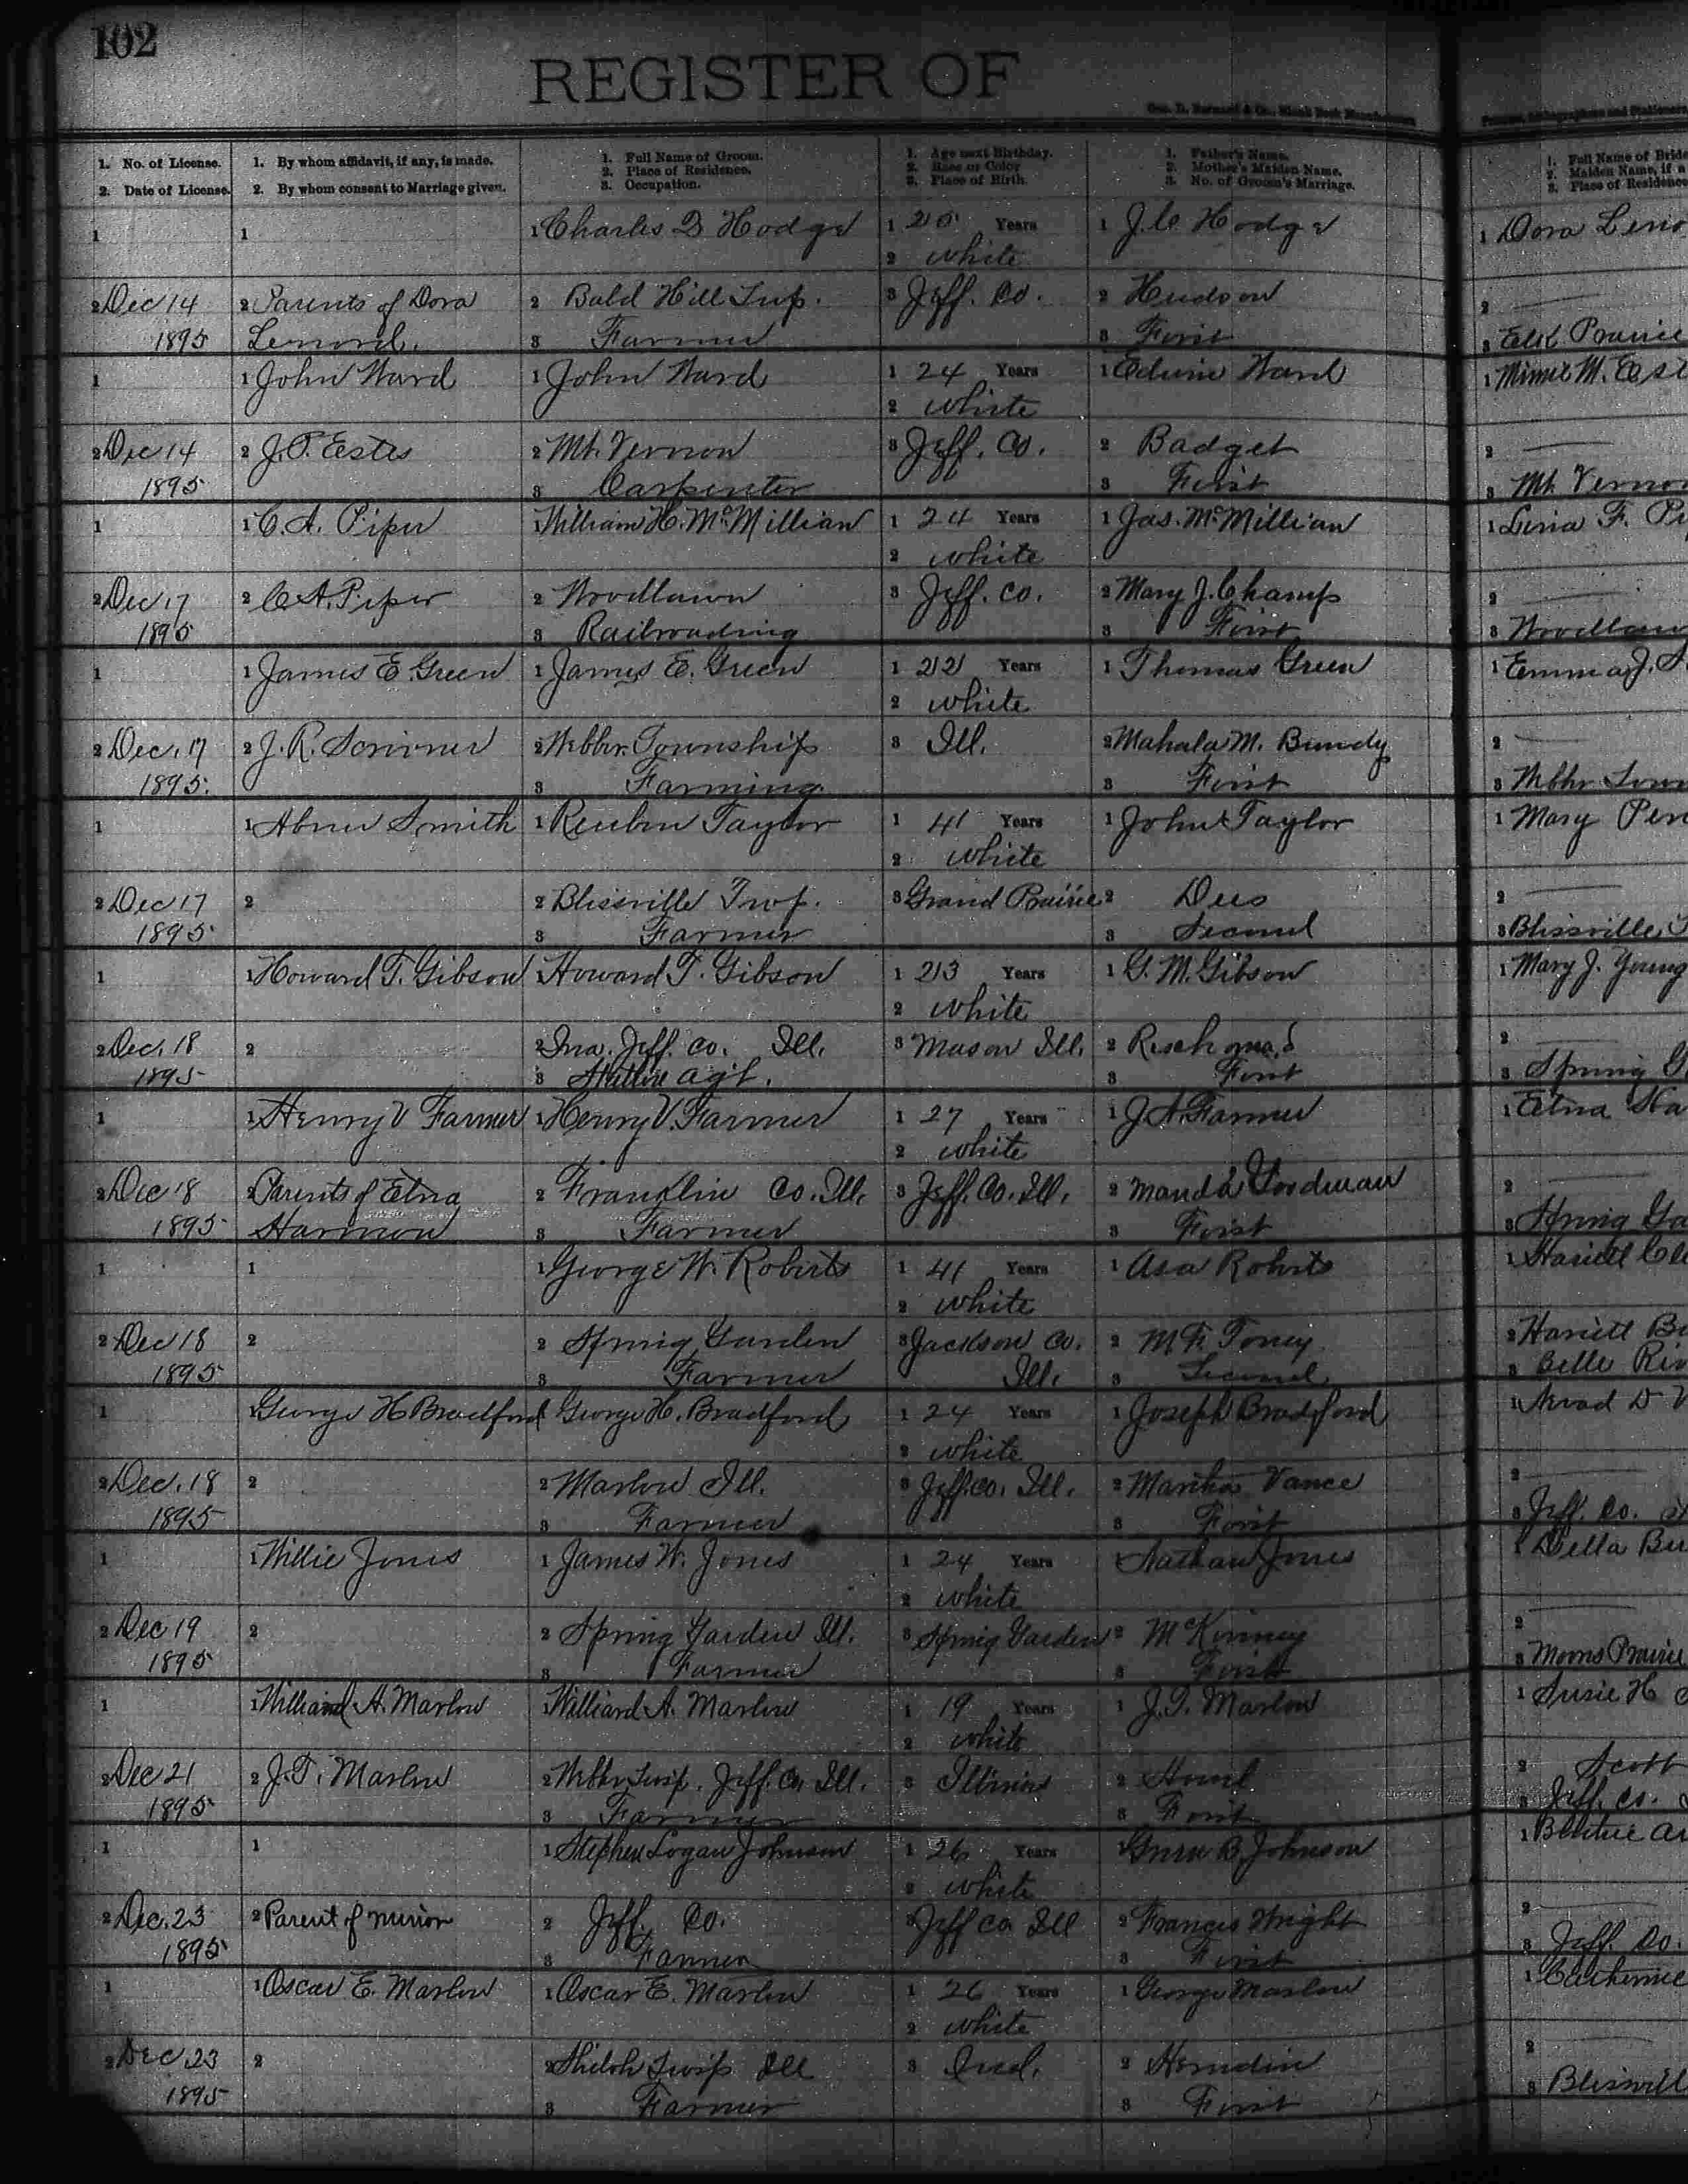 102
REGISTER OF
1. No. of License. 1. By whom affidavit, if any, is made. 1. Full Name of Groom. 1. Age next Birthday. 1. Father's Name. 1. Full Name of Bride
2. Place of Residence. 2. Race or Color 2. Mother's Maiden Name. 2. Maiden Name, if a
2. Date of License. 2. By whom consent to Marriage given. 3. Occupation. 3. Place of Birth. 3. No. of Groom's Marriage. 3. Place of Residence
1 1 1 Charles D Hodge 1 Years 1 J.C. Hodge 1 Dora
2 white
2 Dec 14 2 Parents of Dora 2 Bald Hill Twp. 3 Jeff. Co. 2 Hudson 2
1895 Lenord. 3 Farmer 3 First 3 Elk Prairie
1 1 John Ward 1 John Ward 1 24 Years 1 Edwin Ward 1 M.
2 white
2 Dec 14 2 J.T. Estes 2 Mt. Vernon 3 Jeff. Co. 2 Badget 2
1895 3 Carpenter 3 First 3 Mt. Vernon
1 1 C. A. Piper 1 William H. McMillian 1 24 Years 1 Jas. McMillian 1 F.
2 white
2 Dec 17 2 C A. Piper 2 Woodlawn 3 Jeff. Co. 2 Mary J. Champ 2
1895 3 Railroading 3 First 3 Woodlawn
1 1 James E. Green 1 James E. Green 1 22 Years 1 Thomas Green 1 Emma J.
2 white
2 Dec. 17 2 J. R. Scrivner 2 Webber Township 3 Ill. 2 Mahala M. Bundy 2
1895. 3 Farming 3 First 3
1 1 Abner Smith 1 Reuben Taylor 1 41 Years 1 John Taylor 1 Mary
2 white
2 Dec 17 2 2 Blissville Twp. 3 Grand Prairie 2 Dees 2
1895 3 Farmer 3 Second 3 Blissville
1 1 Howard T. Gibson 1 Howard T. Gibson 1 23 Years 1 G. M. Gibson 1 Mary J. Young
2 white
2 Dec. 18 2 2 Ina. Jeff. Co. Ill. 3 Mason Ill. 2 2
1895 3 Station agt. 3 First 3 Spring
1 1 Henry V Farmer 1 Henry V. Farmer 1 27 Years 1 J A. Farmer 1 Etna
2 white
2 Dec 18 2 Parents of Etna 2 Franklin Co. Ill. 3 Jeff. Co. Ill. 2 Manda Goodman 2
1895 Harmon 3 Farmer 3 First 3 Spring
1 1 1 George W. Roberts 1 41 Years 1 Asa Roberts 1 Hariett
2 white
2 Dec 18 2 2 Spring Garden 3 Jackson Co. 2 M F. Toney 2 Hariett
1895 3 Farmer Ill. 3 Second 3 Belle
1 1 George H Bradford 1 George H. Bradford 1 24 Years 1 Joseph Bradford 1
2 white
2 Dec. 18 2 2 Marlow Ill. 3 Jeff. Co. Ill. 2 Martha Vance 2
1895 3 Farmer 3 First 3 Jeff. Co.
1 1 Willie Jones 1 James W. Jones 1 24 Years 1 Nathan Jones 1 Della
2 white
2 Dec 19 2 2 Spring Garden Ill. 3 Spring Garden 2 McKinney 2
1895 3 Farmer 3 First 3 Prairie
1 1 Williard A. Marlow 1 Williard A. Marlow 1 19 Years 1 J.T. Marlow 1 Susie H
2 white
2 Dec 21 2 J.T. Marlow 2 Webber Twp. Jeff. Co. Ill. 3 Illinois 2 2 Scott
1895 3 Farmer 3 First 3 Jeff. Co.
1 1 1 Stephen Logan Johnson 1 26 Years 1 B. Johnson 1
2 white
2 Dec. 23 2 Parent of minor 2 Jeff. Co. 3 Jeff Co. Ill 2 Frances Wright 2
1895 3 Farmer 3 First 3 Jeff. Co.
1 1 Oscar E. Marlow 1 Oscar E. Marlow 1 26 Years 1 George Marlow 1 Catherine
2 white
2 Dec 23 2 2 Shiloh Twp Ill 3 Ind. 2 Herndin 2
1895 3 Farmer 3 First 3